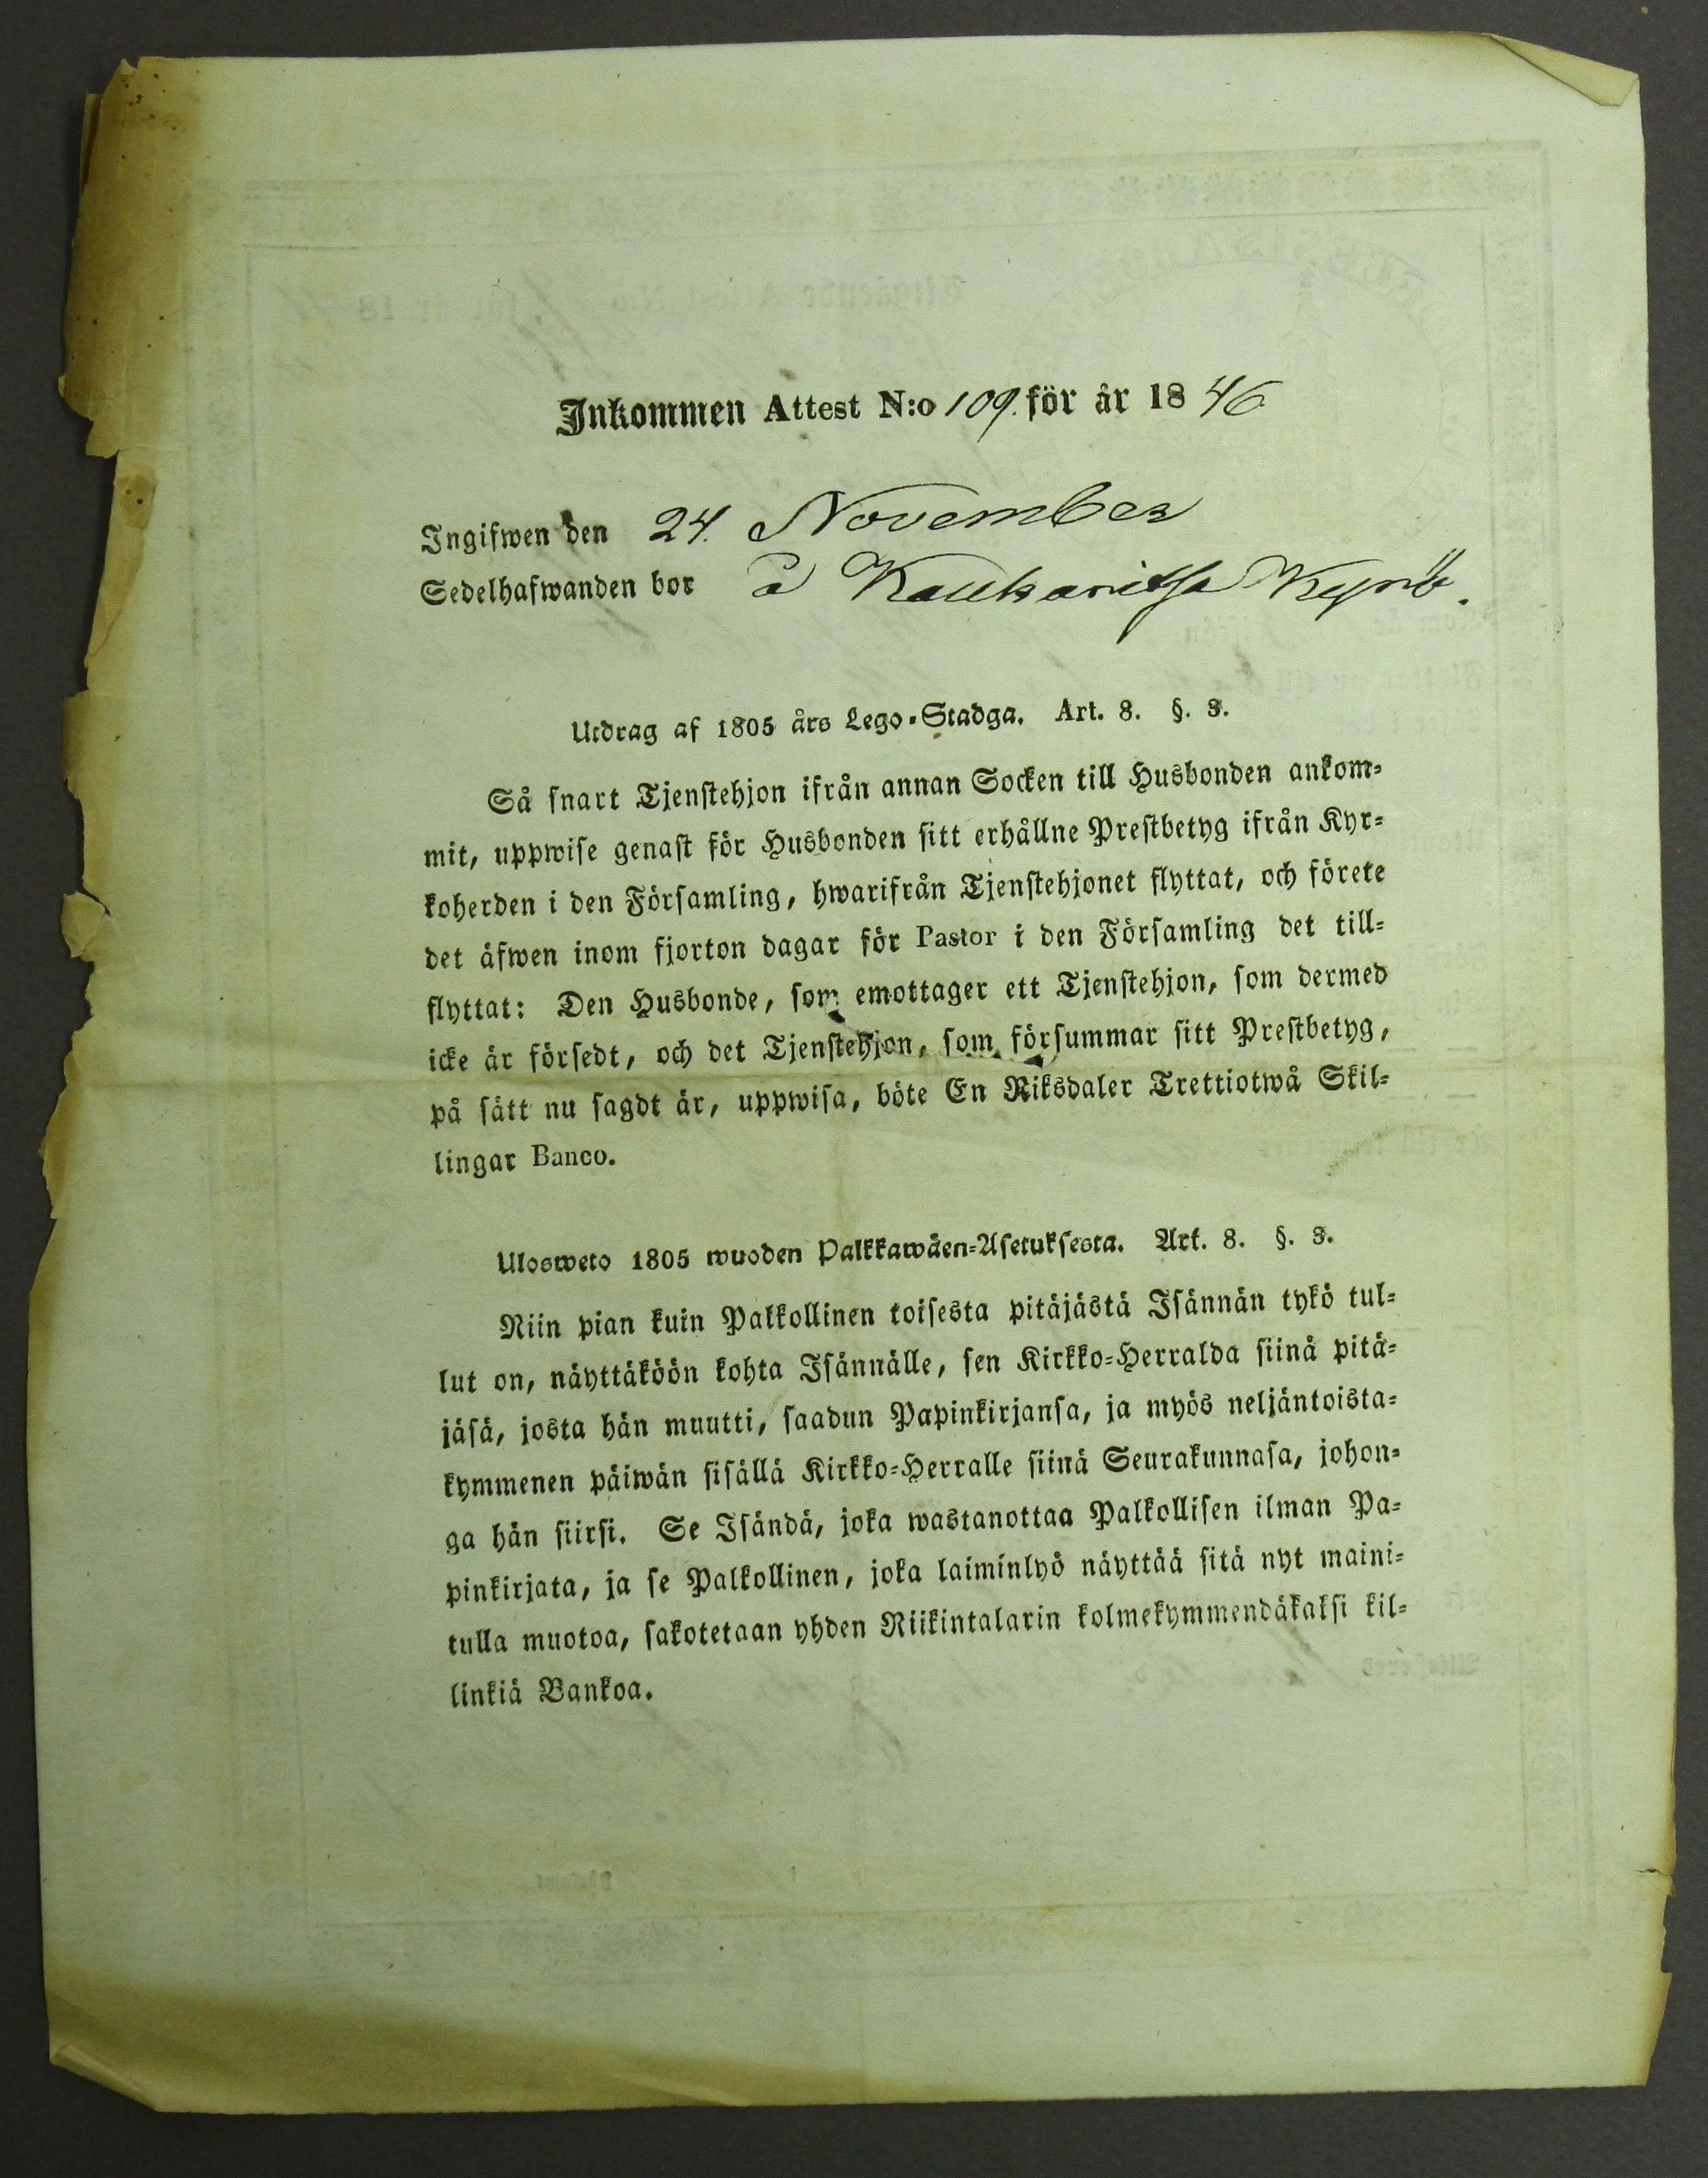 Inkommen Attest N:o 109. för år 1846
Ingifwen den 24. November
Sedelhafwanden bor å Kaukaritsa Kyrö.
Utdrag af 1805 års Lego-Stadga. Art. 8. §. 3.
Så snart Tjenstehjon ifrån annan Socken till Husbonden ankom-
mit, uppwise genast för Husbonden sitt erhållne Prestbetyg ifrån Kyr-
koherden i den Församling, hwarifrån Tjenstehjonet flyttat, och förete
det äfwen inom fjorton dagar för Pastor i den Församling det till-
flyttat: Den Husbonde, som emottager ett Tjenstehjon, som dermed
icke är försedt, och det Tjenstehjon, som försummar sitt Prestbetyg,
på sätt nu sagdt är, uppwisa, böte En Riksdaler Trettiotwå Skil-
lingar Banco.
Ulosweto 1805 wuoden Palkkawäen-Asetuksesta. Art. 8. §. 3.
Niin pian kuin Palkollinen toisesta pitäjästä Isännän tykö tul-
lut on, näyttäköön kohta Isännälle, sen Kirkko-Herralda siinä pitä-
jäsä, josta hän muutti, saadun Papinkirjansa, ja myös neljäntoista-
kymmenen päiwän sisällä Kirkko-Herralle siinä Seurakunnasa, johon-
ga hän siirsi. Se Isändä, joka wastanottaa Palkollisen ilman Pa-
pinkirjata, ja se Palkollinen, joka laiminlyö näyttää sitä nyt maini-
tulla muotoa, sakotetaan yhden Riikintalarin kolmekymmendäkaksi kil-
linkiä Bankoa.